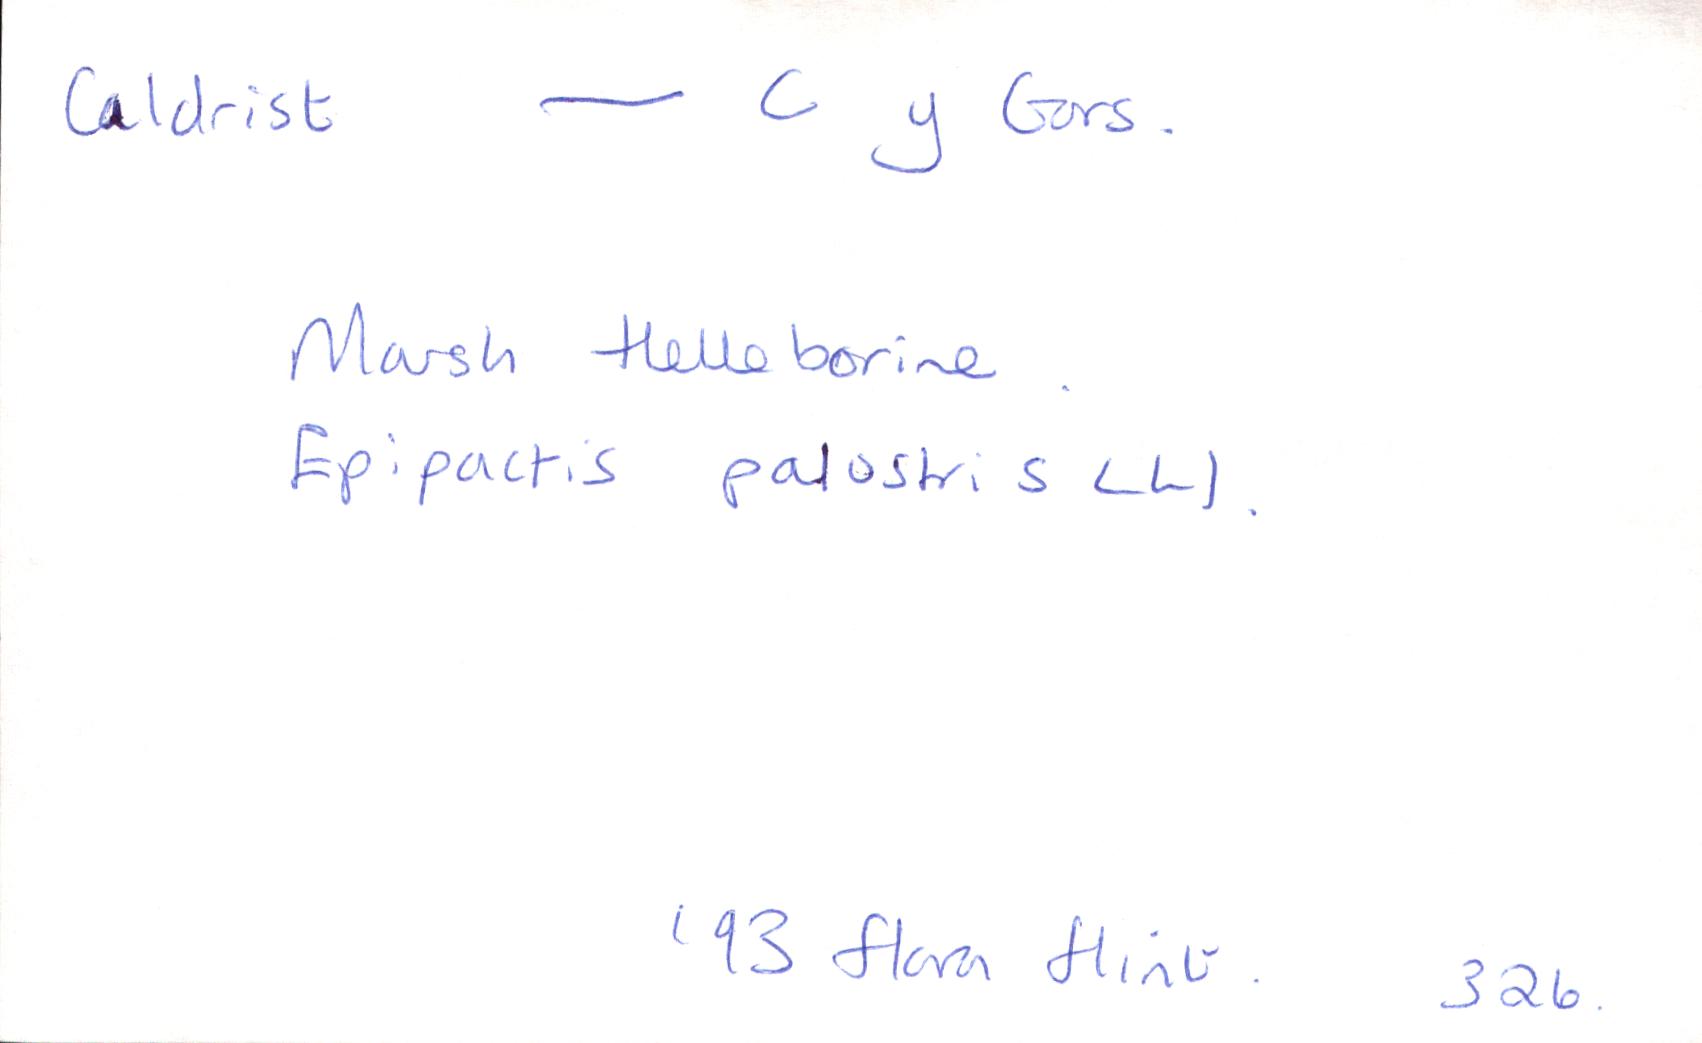 Caldrist — C y Gors.
Marsh Helleborine.
Epipactis palustris (L).
'93 Flora Flint. 326.